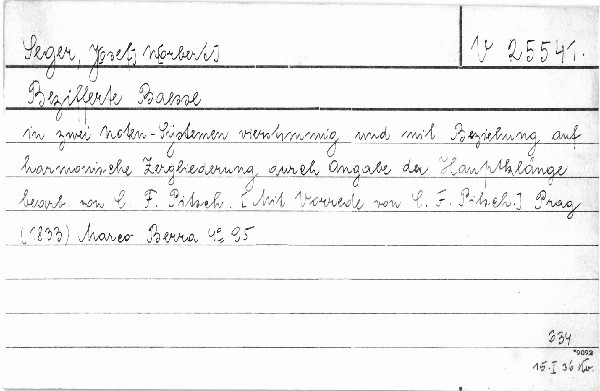 Seger, Josef, Norbert
V 25541.
Bezifferte Baesse
in zwei Noten-Systemen vierstimmig und mit Beziehung auf
harmonische Zergliederung durch Angabe der Hauptklänge
bearb. von C. F. Pitsch. [Mit Vorrede von C. F. Pitsch.] Prag
(1833) Marco Berra 4° 95
334
*9092
15.I 36 Kv.